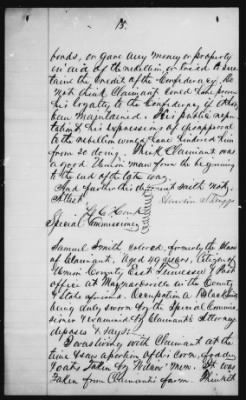 15.
bonds, or gave any money or property
in aid of the rebellion, or tried to sus
tain the credit of the Confederacy. Do
not think Claimant could have proven
his loyalty to the Confederacy if it had
been maintained. His public repu
tation & his expressions of disapproval
to the rebellion would have hindered him
from so doing. Think Claimant was
a good Union man from the beginning
to the end of the late war.
And further this deponent saith not.
Attest
Special Commissioner
Samuel Smith colored, formerly the slave
of Claimant, Aged 40 years, Citizen of
Union County East Tennessee & Post
office at Maynardsville in the County
& State aforesaid. Occupation a Blacksmith
being duly sworn by the Special Commis
sioner & examined by Claimant's Attorney
deposes & says:
I was living with Claimant at the
time I saw a portion of his corn, fodder
& oats taken by Union men. It was
taken from Claimant's farm. Think it